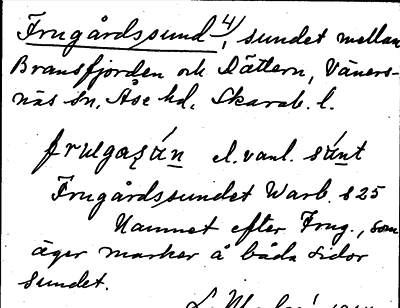 Frugårdssund 4), sundet mellan
Bransfjorden och Dättern, Väners-
näs sn, Åse hd, Skarab. l.
frugaşún el. vanl. súnt
Frugårdssundet Warb. s 25
Namnet efter Frug., som
äger marker å båda sidor
sundet.